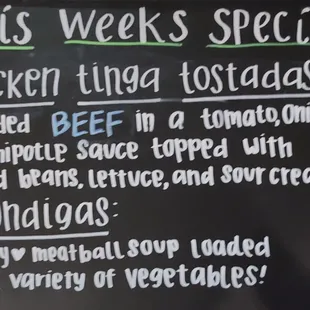 is WEEKS SPECI
cken tinga tostadas
ded BEEF in a tomato, oni
hipotle sauce topped with
d beans, lettuce, and sour crea
ndigas:
y♥ meatball soup loaded
variety of vegetables!